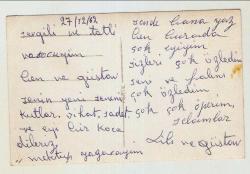 27/12/62
sevgili ve tatlı
ben ve güstav
senin yeni seneni
kutlar, sıhat, sadet
ve eyi bir koca
dileriz
mektup yazacağım
sende bana yaz
ben burada
çok eyiyim
sizleri çok özledim
seni ve
çok özledim
çok çok öperim,
selamlar
Lili ve güstav